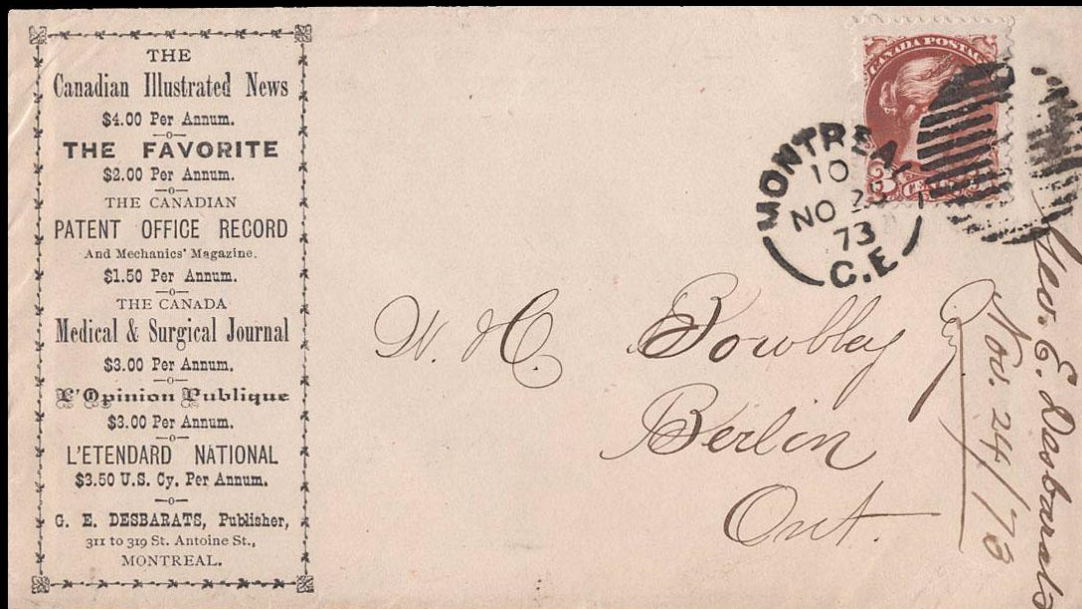 THE
Canadian Illustrated News
$4.00 Per Annum.
—o—
THE FAVORITE
$2.00 Per Annum.
—o—
THE CANADIAN
PATENT OFFICE RECORD
And Mechanics' Magazine.
$1.50 Per Annum.
—o—
THE CANADA
Medical & Surgical Journal
$3.00 Per Annum.
—o—
L'Opinion Publique
$3.00 Per Annum.
—o—
L'ETENDARD NATIONAL
$3.50 U.S. Cy. Per Annum.
—o—
G. E. DESBARATS, Publisher,
311 to 319 St. Antoine St.,
MONTREAL.
CANADA POSTAGE
3 CENTS
MONTREAL
10
NO
73
C.E
W. H. Bowlbey
Berlin
Ont.
Geo. E. Desbarats
Nov. 24/73